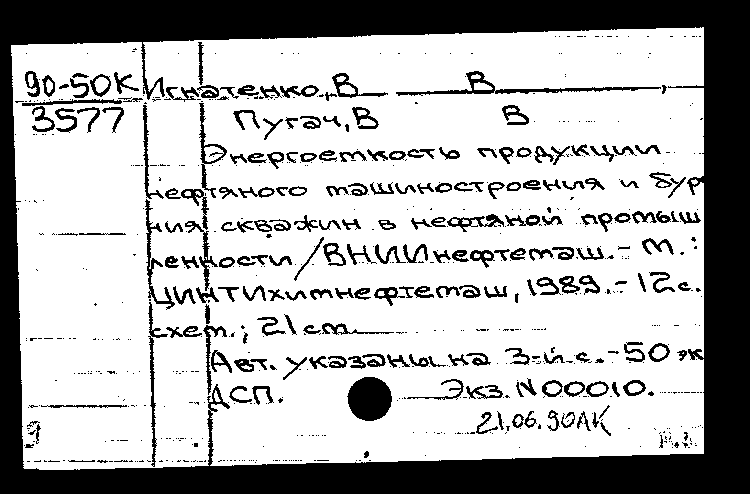 90-50К Игнатенко, В В ,
3577 Пугач, В В
Энергоемкость продукции
нефтяного машиностроения и бур
ния скважин в нефтяной промыш
ленности / ВНИИнефтемаш. - М. :
ЦИНТИхимнефтемаш, 1989. - 12 с.
схем.; 21 см.
Авт. указаны на 3-й с. - 50 эк
ДСП. Экз. N 00010.
21.06.90
9